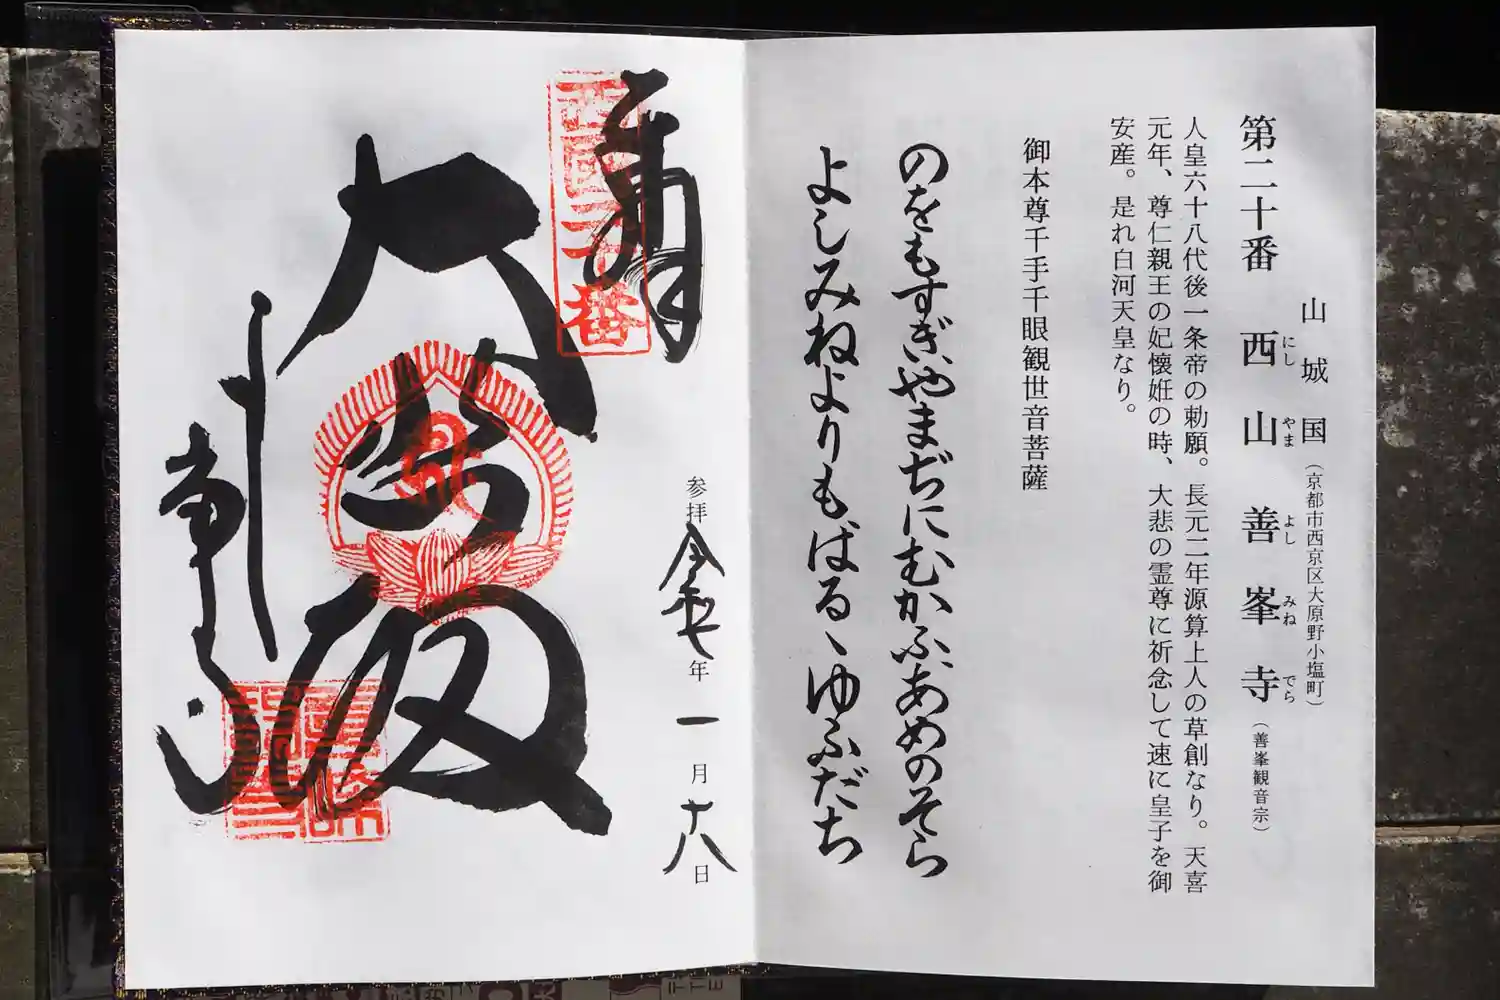 山城国（京都市西京区大原野小塩町）
第二十番 西山 善峯寺（善峯観音宗）
にし やま よし みね でら
人皇六十八代後一条帝の勅願。長元二年源算上人の草創なり。天喜
元年、尊仁親王の妃懐妊の時、大悲の霊尊に祈念して速に皇子を御
安産。是れ白河天皇なり。
御本尊千手千眼観世音菩薩
のをもすぎやまぢにむかふあめのそら
よしみねよりもばるゝゆふだち
奉拝
西国二十番
参拝令和七年一月十八日
大悲殿